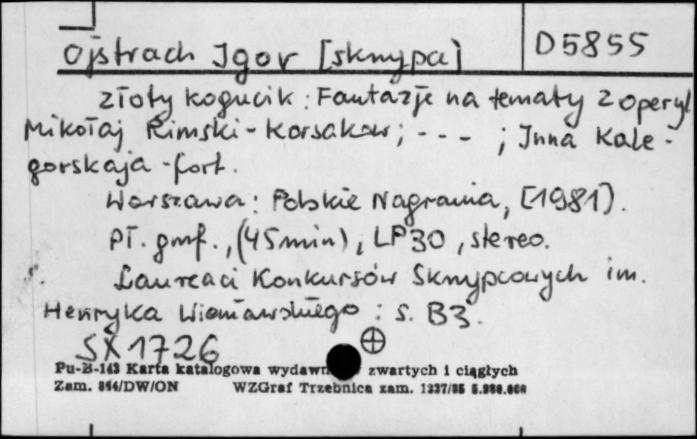 Ojstrach Igor [skrzypce]
D5855
Złoty kogucik : Fantazje na tematy z opery
Mikołaj Rimski-Korsakow ; - - - ; Inna Kale-
gorskaja - fort.
Warszawa : Polskie Nagrania, [1981].
Pł. gmf., (45min), LP30, stereo.
Laureaci Konkursów Skrzypcowych im.
Henryka Wieniawskiego : s. B3.
SX 1726
Pu-B-143 Karta katalogowa wydawn zwartych i ciągłych
Zam. 844/DW/ON WZGraf Trzebnica zam. 1337/85